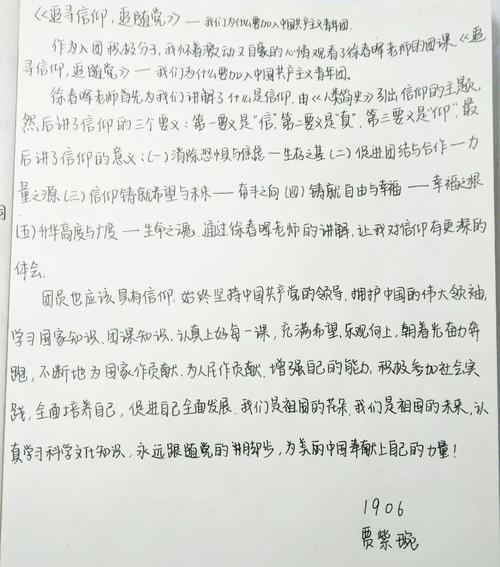 《追寻信仰，追随党》——我们为什么要加入中国共产主义青年团.
作为入团积极分子,我怀着激动又自豪的心情观看了徐春晖老师的团课.《追
寻信仰,追随党》——我们为什么要加入中国共产主义青年团.
徐春晖老师首先为我们讲解了什么是信仰.由《人类简史》引出信仰的主题,
然后讲了信仰的三个要义:第一要义是“信”.第二要义是“真”,第三要义是“仰”.最
后讲了信仰的意义:(一)消除恐惧与焦虑—生存之基(二)促进团结与合作—力
量之源(三)信仰铸就希望与未来—奋斗之向(四)铸就自由与幸福—幸福之根
(五)升华高度与广度—生命之魂.通过徐春晖老师的讲解.让我对信仰有更深的
体会.
团员也应该具有信仰.始终坚持中国共产党的领导,拥护中国的伟大领袖,
学习国家知识、团课知识.认真上好每一课,充满希望.乐观向上,朝着光奋力奔
跑,不断地为国家作贡献.为人民作贡献.增强自己的能力,积极参加社会实
践,全面培养自己,促进自己全面发展.我们是祖国的花朵.我们是祖国的未来,认
真学习科学文化知识,永远跟随党的脚步,为美丽中国奉献上自己的力量!
1906
贾紫琬